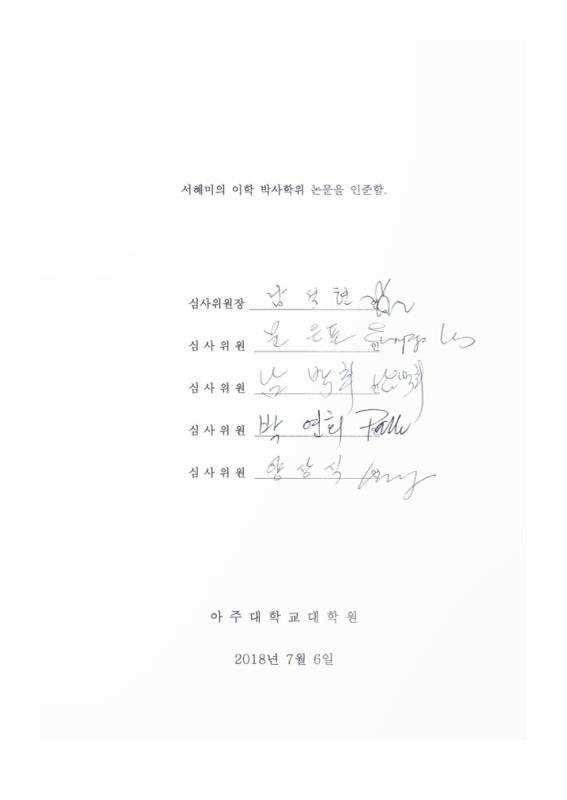 서혜미의 이학 박사학위 논문을 인준함.
심사위원장 남 석 현 인
심 사 위 원 은표 인
심 사 위 원 남 인
심 사 위 원 박 연희 인
심 사 위 원 양 상 식 인
아 주 대 학 교 대 학 원
2018년 7월 6일